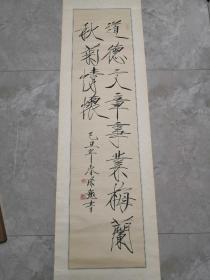 道德文章事業梅蘭
秋菊情懷
己丑年